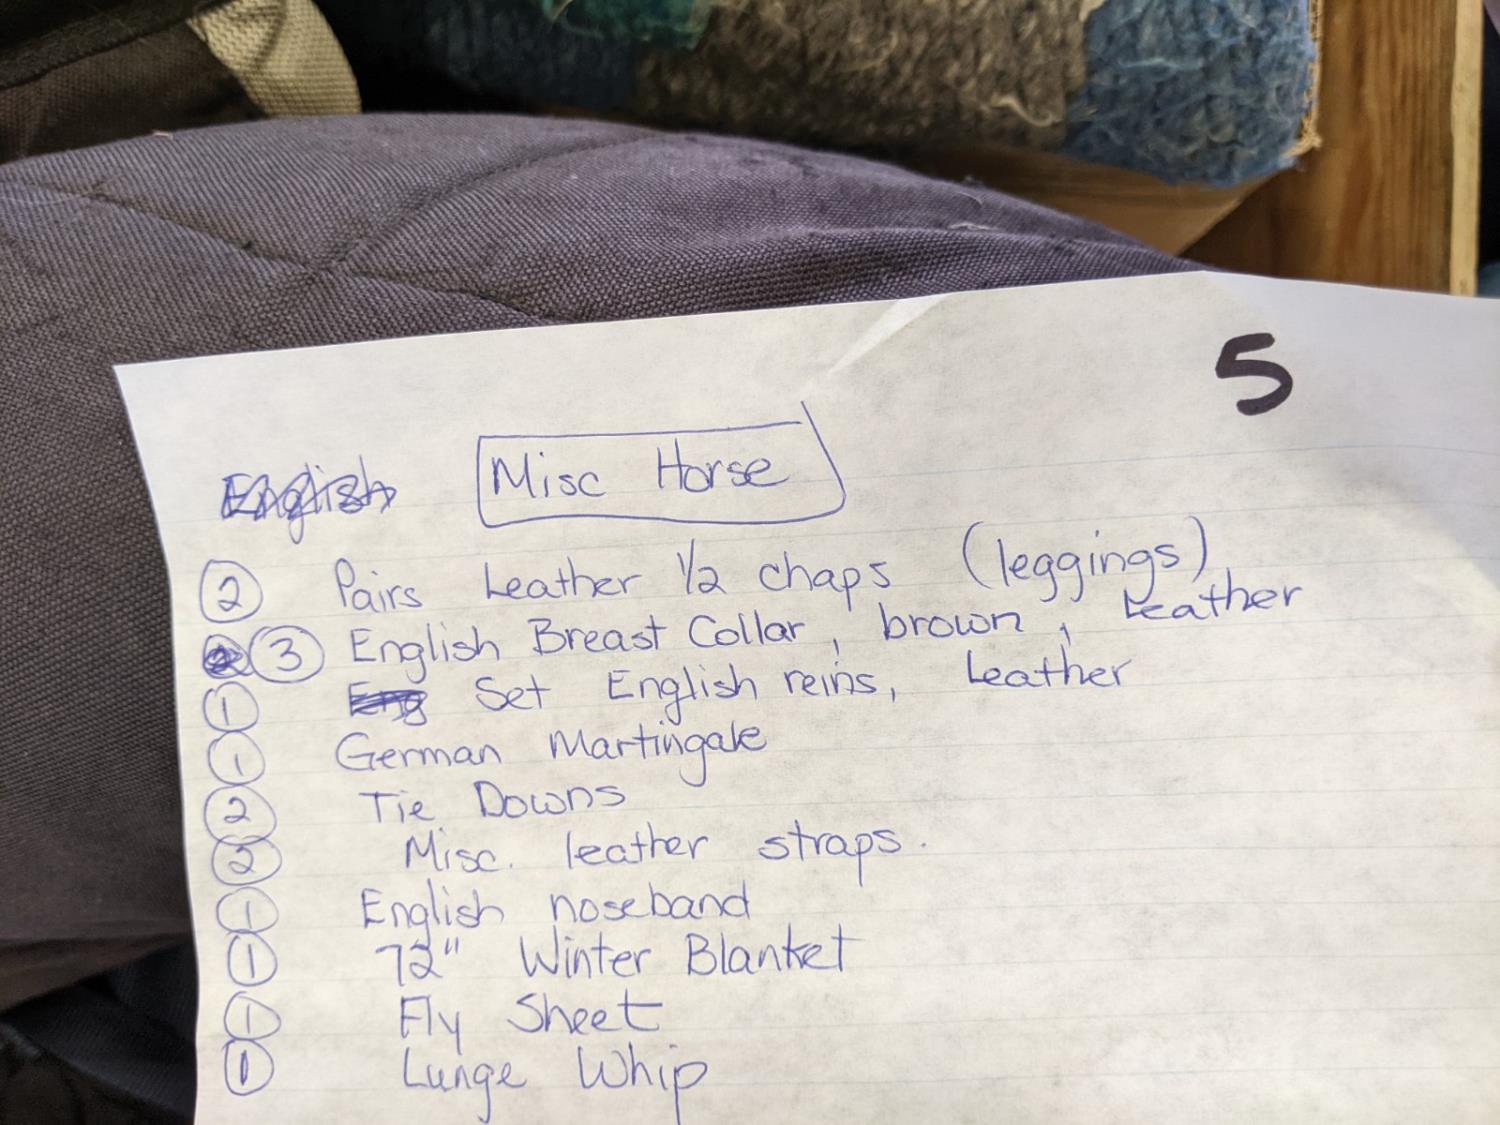 5
English Misc Horse
2 Pairs Leather 1/2 chaps (leggings)
2 3 English Breast Collar, brown, Leather
1 Eng Set English reins, Leather
1 German Martingale
2 Tie Downs
2 Misc. leather straps.
1 English noseband
1 72" Winter Blanket
1 Fly Sheet
1 Lunge Whip